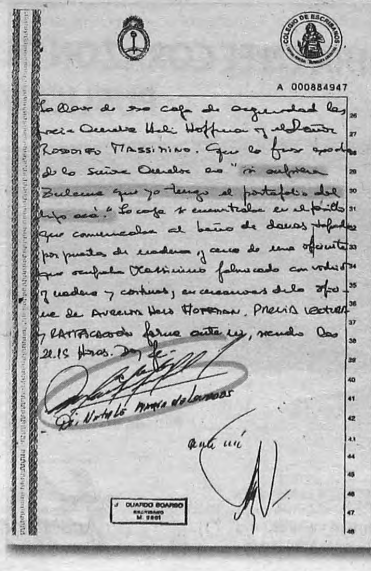 COLEGIO DE ESCRIBANOS
A 000884947
La llave de esa caja de seguridad las
tenía Aurelia Heli Hoffman y el Señor
RODOLFO MASSIMINO. Que la frase exacta
de la Señora Aurelia era "si supiera
Zulema que yo tengo el portafolio del
hijo acá." La caja se encontraba en el pasillo
que comunicaba al baño de damas
por puertas de madera y cerca de una oficinita
que ocupaba Massimino fabricado con vidrio
y madera y cortinas, en cercanías de la ofici
na de AURELIA HELI HOFFMAN. PREVIA LECTURA
y RATIFICACION firma ante mí, siendo las
21.15 Horas. Doy fe.
Di Natale María de Lourdes
ante mí
EDUARDO
ESCRIBANO
26
27
28
29
30
31
32
33
34
35
36
37
38
39
40
41
42
43
44
45
46
47
48